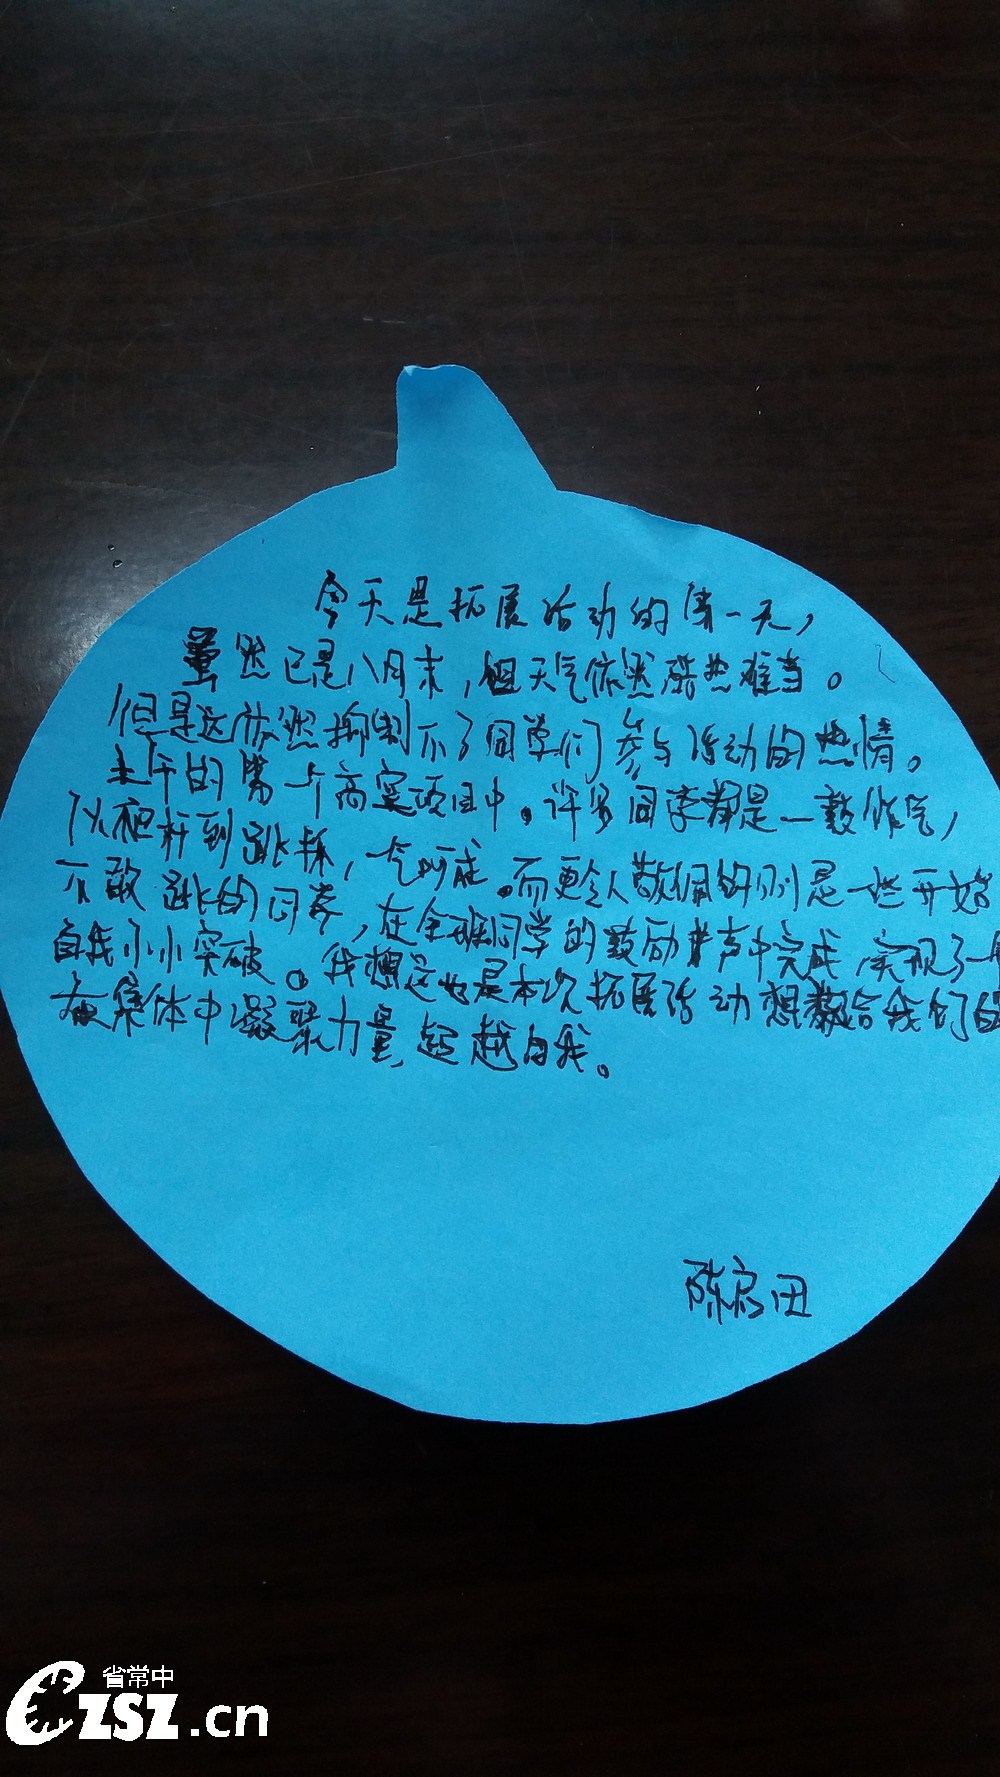 今天是拓展活动的第一天，
虽然已是八月末，但天气依然酷热难当。
但是这依然抑制不了同学们参与活动的热情。
上午的第一个高空项目中。许多同学都是一鼓作气，
从爬杆到跳抓，一气呵成。而更令人敬佩的则是一些开始
不敢跳的同学，在全班同学的鼓励声中完成，实现了一
自我小小突破。我想这也是本次拓展活动想教给我们的
在集体中凝聚力量，超越自我。
陈
省常中
CZSZ.cn